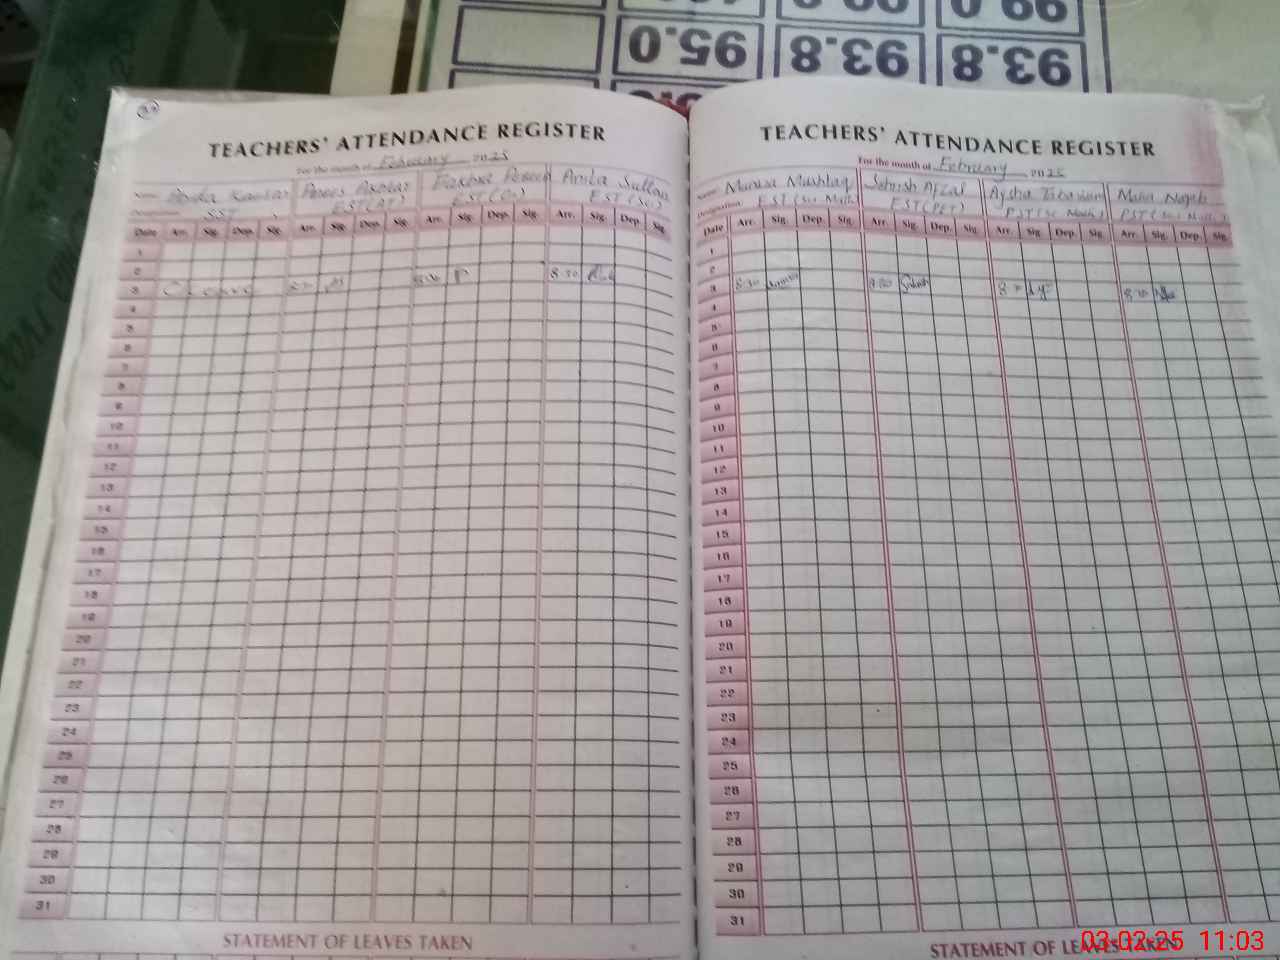 99.0 99.0
95.0 93.8 93.8
TEACHERS' ATTENDANCE REGISTER
For the month of February 2025
Name Kausar Akbar Anila Sultan
Designation SST EST(AT) EST(Sc)
Date Arr. Sig. Dep. Sig. Arr. Sig. Dep. Sig. Arr. Sig. Dep. Sig. Arr. Sig. Dep. Sig.
1
2
3 C. Leave 8:30 8:30
4
5
6
7
8
9
10
11
12
13
14
15
16
17
18
19
20
21
22
23
24
25
26
27
28
29
30
31
STATEMENT OF LEAVES TAKEN
TEACHERS' ATTENDANCE REGISTER
For the month of February 2025
Name Mushtaq Sehrish Afzal Aysha
Designation EST (Sc. Math) EST(PET) PST(Sc Math)
Date Arr. Sig. Dep. Sig. Arr. Sig. Dep. Sig. Arr. Sig. Dep. Sig. Arr. Sig. Dep. Sig.
1
2
3 8:30 8:30
4
5
6
7
8
9
10
11
12
13
14
15
16
17
18
19
20
21
22
23
24
25
26
27
28
29
30
31
STATEMENT OF LEAVES TAKEN
03-02-25 11:03